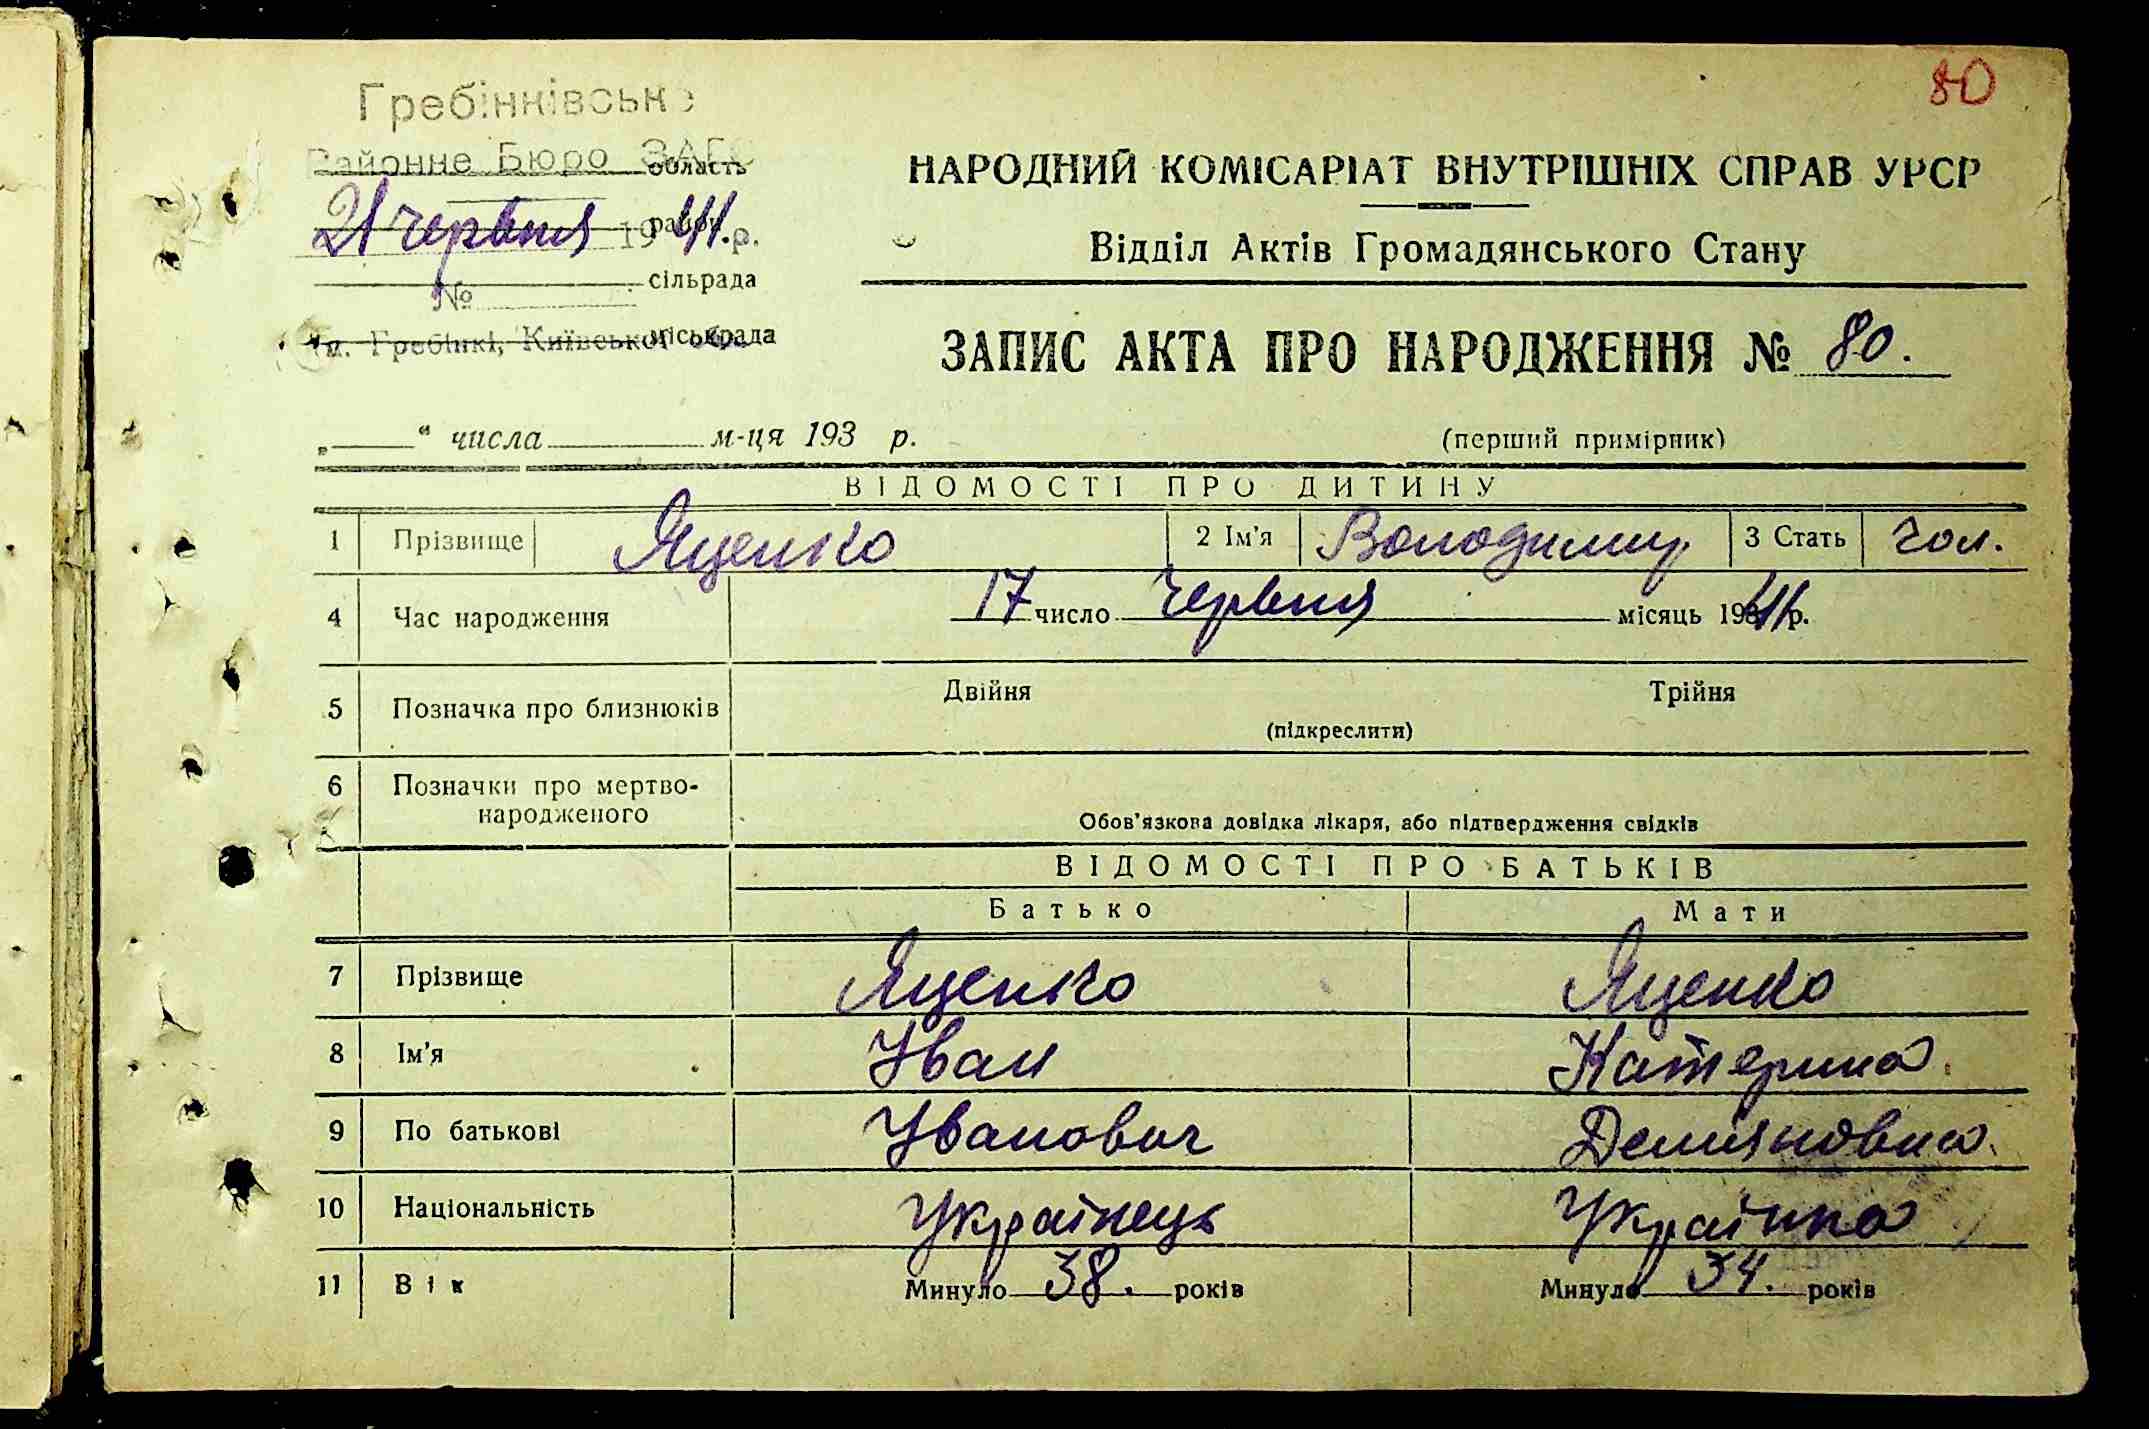 80
Гребінківське
Районне Бюро ЗАГС область
21 червня 1941 р. район
сільрада
№
м. Гребінкі, Київської обл. міськрада
НАРОДНИЙ КОМІСАРІАТ ВНУТРІШНІХ СПРАВ УРСР
Відділ Актів Громадянського Стану
ЗАПИС АКТА ПРО НАРОДЖЕННЯ № 80.
„ “ числа м-ця 193 р. (перший примірник)
ВІДОМОСТІ ПРО ДИТИНУ
1 Прізвище Яценко 2 Ім'я Володимир 3 Стать чол.
4 Час народження 17 число червня місяць 1941 р.
5 Позначка про близнюків Двійня Трійня
(підкреслити)
6 Позначки про мертво-
народженого
Обов'язкова довідка лікаря, або підтвердження свідків
ВІДОМОСТІ ПРО БАТЬКІВ
Батько Мати
7 Прізвище Яценко Яценко
8 Ім'я Іван Катерина
9 По батькові Іванович Демяновна
10 Національність Українець Українка
11 Вік Минуло 38. років Минуло 34. років